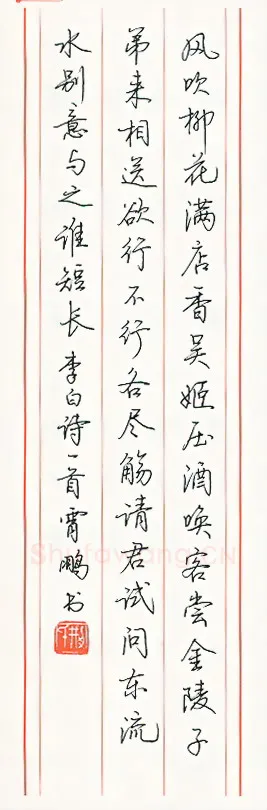 风吹柳花满店香吴姬压酒唤客尝金陵子
弟来相送欲行不行各尽觞请君试问东流
水别意与之谁短长李白诗一首霄鹏书
ShufaWang.CN